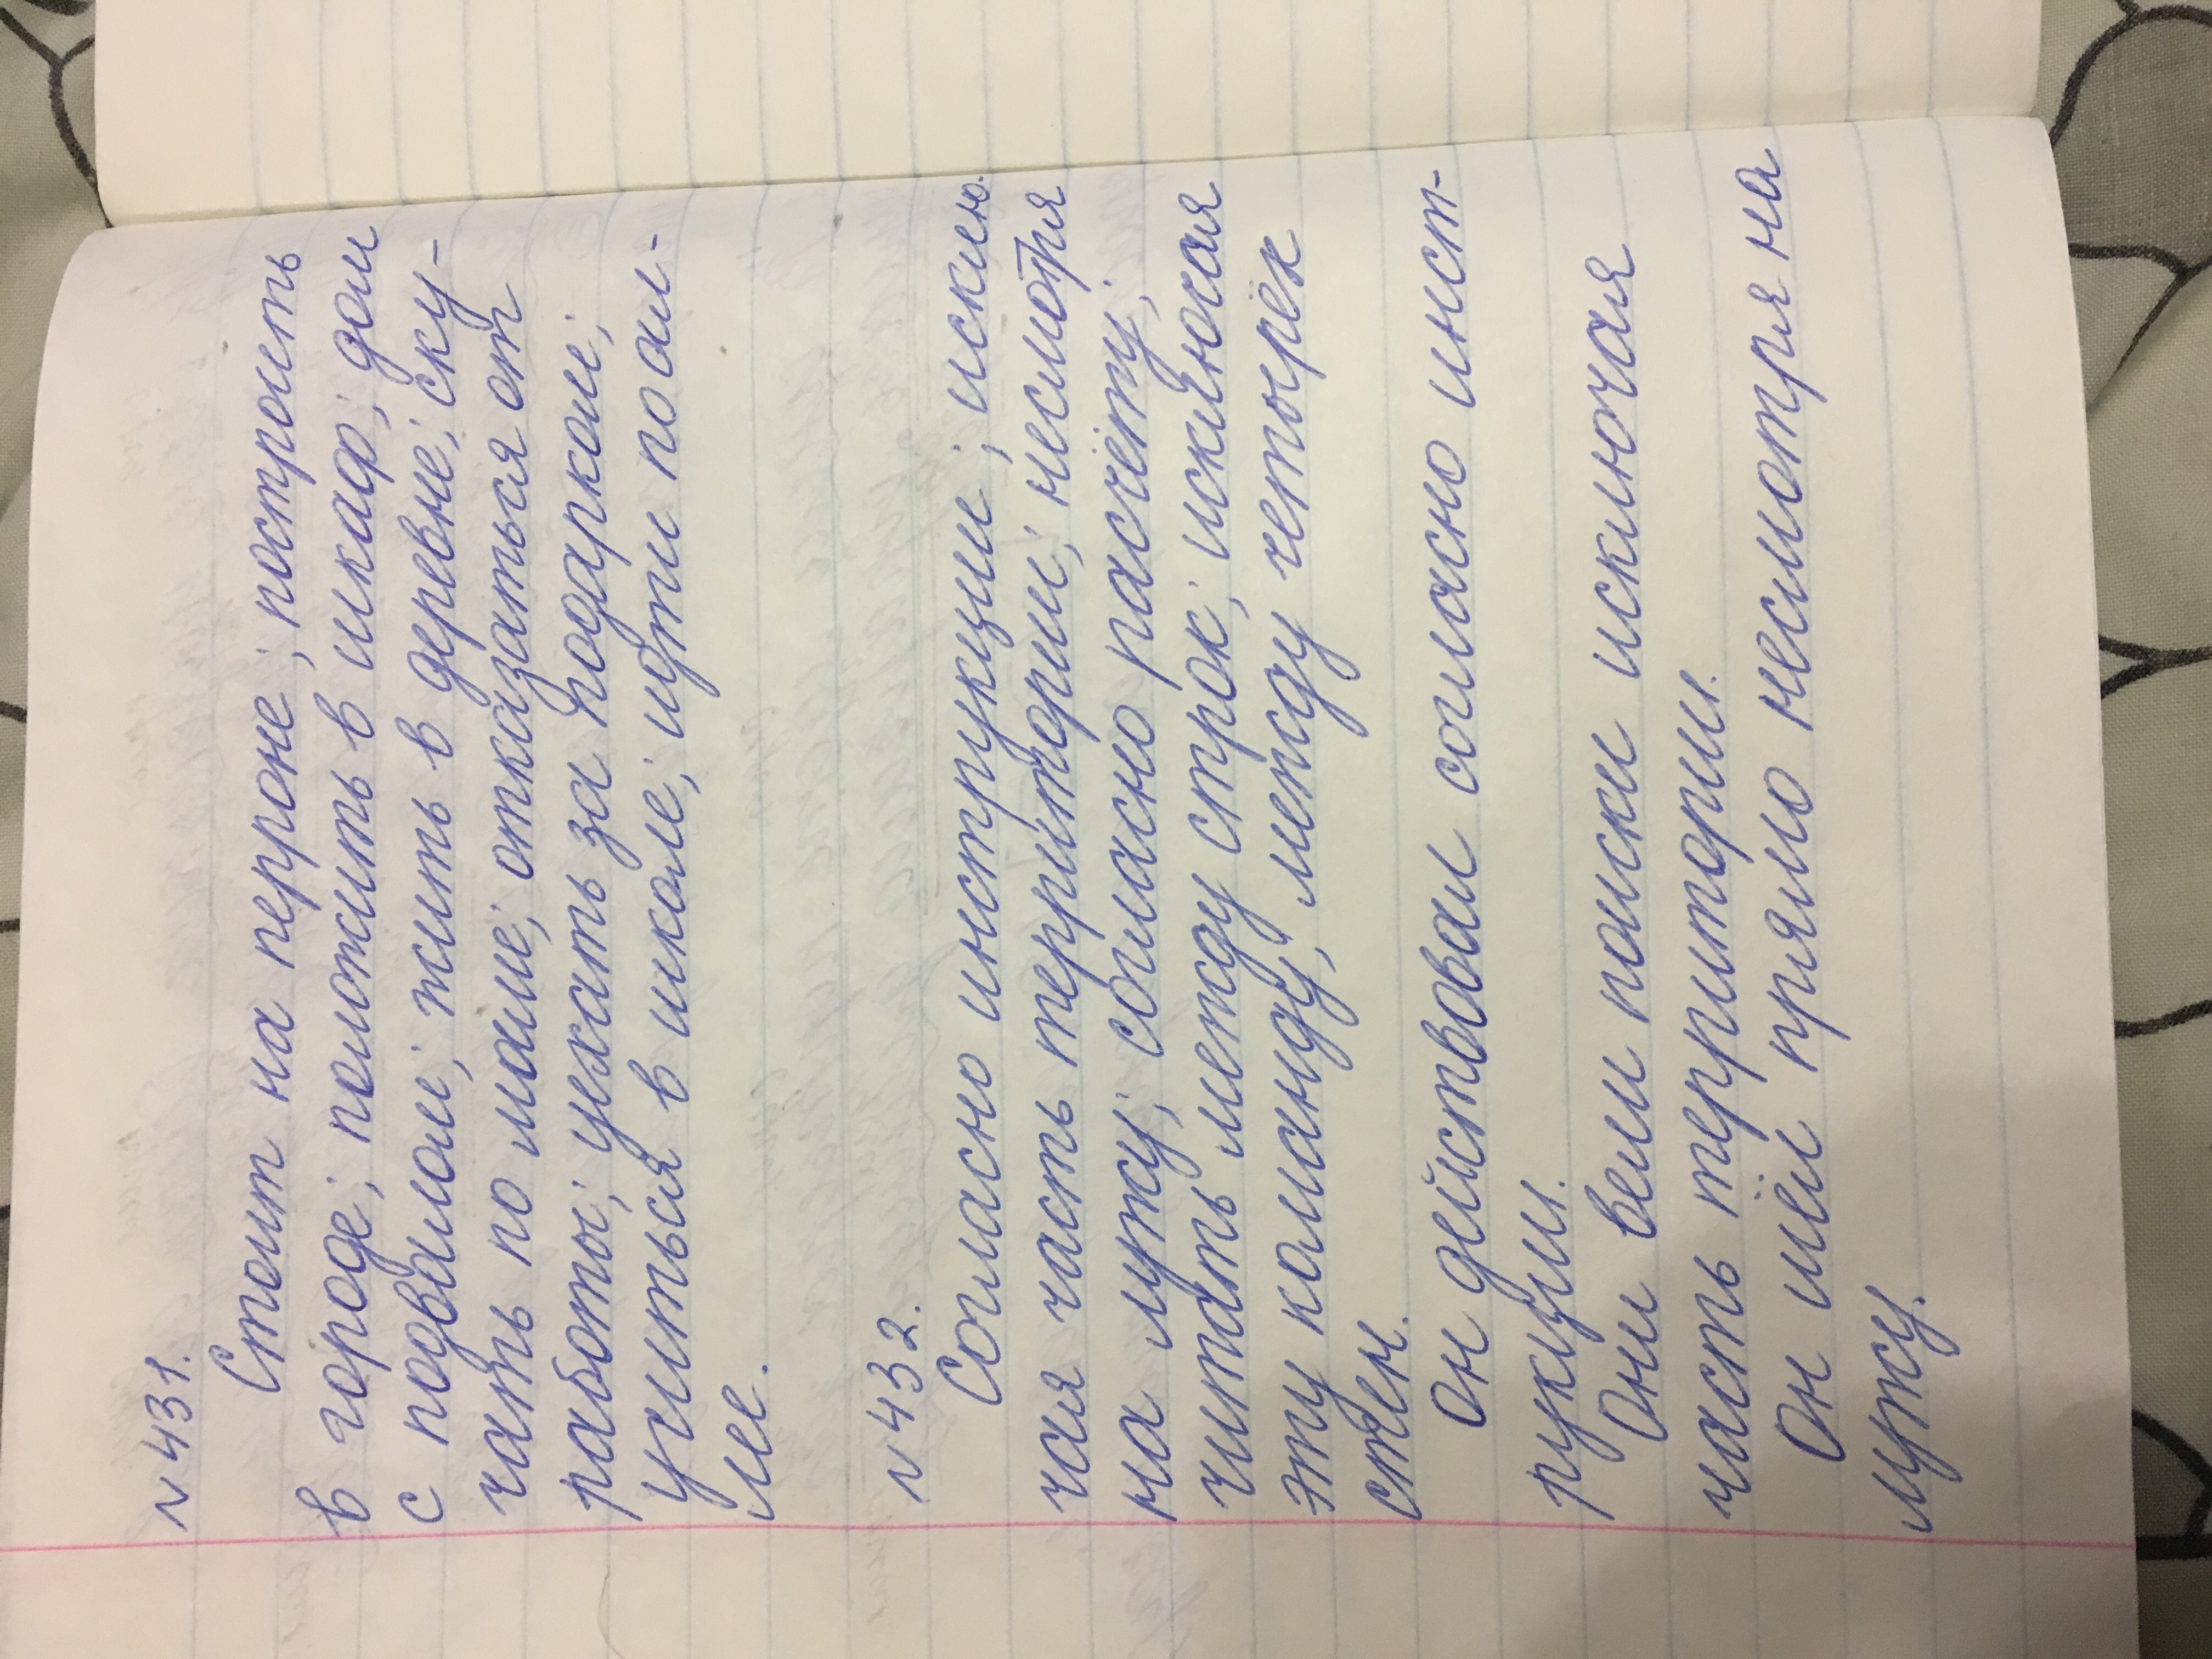 N 431.
Стоит на перроне; построить
в городе; положить в шкаф; дом
с подвалом; жить в деревне; ску-
чать по маме; отказаться от
работы; уехать за подарком;
учиться в школе; идти по ал-
лее.
N 432.
Согласно инструкции; исклю.
чая часть территории; несмотря
на лужу; согласно расчёту;
читать между строк; исключая
эту команду; между четырёх
стен.
Он действовал согласно инст-
рукции.
Они вели поиски исключая
часть территории.
Он шёл прямо несмотря на
лужу.